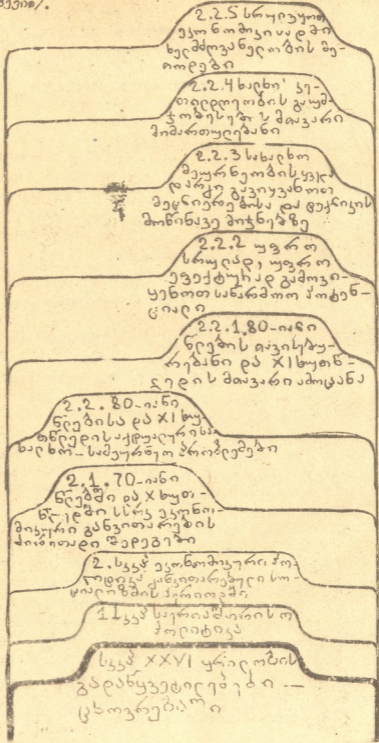 2.2.5 სრულვყოთ
ეკონომიკისადმი
ხელმძღვანელობის მე-
თოდები
2.2.4 ხალხის კე-
თილდღეობის გაუმ-
ჯობესების მთავარი
მიმართულებანი
2.2.3 სახალხო
მეურნეობის ყველა
დარგი გავიყვანოთ
მეცნიერებისა და ტექნიკის
მოწინავე მიჯნებზე
2.2.2 უფრო
სრულად, უფრო
ეფექტურად გამოვი-
ყენოთ საწარმოო პოტენ-
ციალი
2.2.1. 80-იანი
წლების თავისებუ-
რებანი და XI ხუთწ-
ლედის მთავარი ამოცანა
2.2. 80-იანი
წლებისა და XI ხუ-
თწლედის აქტუალური სა-
ხალხო-სამეურნეო პრობლემები
2.1. 70-იანი
წლებში და X ხუთ-
წლედში სსრკ ეკონო-
მიკური განვითარების
ძირითადი შედეგები
2. სკკპ ეკონომიკური პო-
ლიტიკა განვითარებული სო-
ციალიზმის პერიოდში
1. სკკპ საერთაშორისო
პოლიტიკა
სკკპ XXVI ყრილობის
გადაწყვეტილებები —
ცხოვრებაში